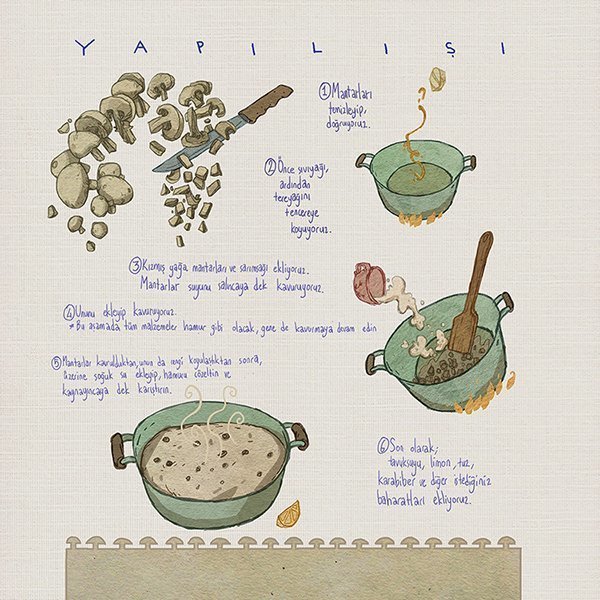 YAPILIŞI
① Mantarları
temizleyip,
doğruyoruz.
② Önce sıvıyağı,
ardından
tereyağını
tencereye
koyuyoruz.
③ Kızmış yağa mantarları ve sarımsağı ekliyoruz.
Mantarlar suyunu salıncaya dek kavuruyoruz.
④ Ununu ekleyip kavuruyoruz.
* Bu aşamada tüm malzemeler hamur gibi olacak, gene de kavurmaya devam edin
⑤ Mantarlar kavrulduktan, unun da rengi koyulaştıktan sonra,
üzerine soğuk su ekleyip, hamuru çözeltin ve
kaynayıncaya dek karıştırın.
⑥ Son olarak;
tavuksuyu, limon, tuz,
karabiber ve diğer istediğiniz
baharatları ekliyoruz.